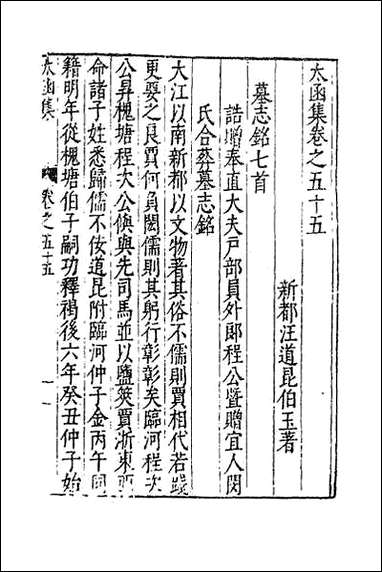 太函集卷之五十五
新都汪道昆伯玉著
墓志銘七首
誥贈奉直大夫戶部員外郎程公暨贈宜人閔
氏合葬墓志銘
大江以南新都以文物著其俗不儒則賈相代若踐
更要之良賈何負閎儒則其躬行彰彰矣臨河程次
公昇槐塘程次公與先司馬並以鹽筴賈浙東西
命諸子姓悉歸儒不佞道昆附臨河仲子金丙午同
籍明年從槐塘伯子嗣功釋褐後六年癸丑仲子始
太函集
卷之五十五
一